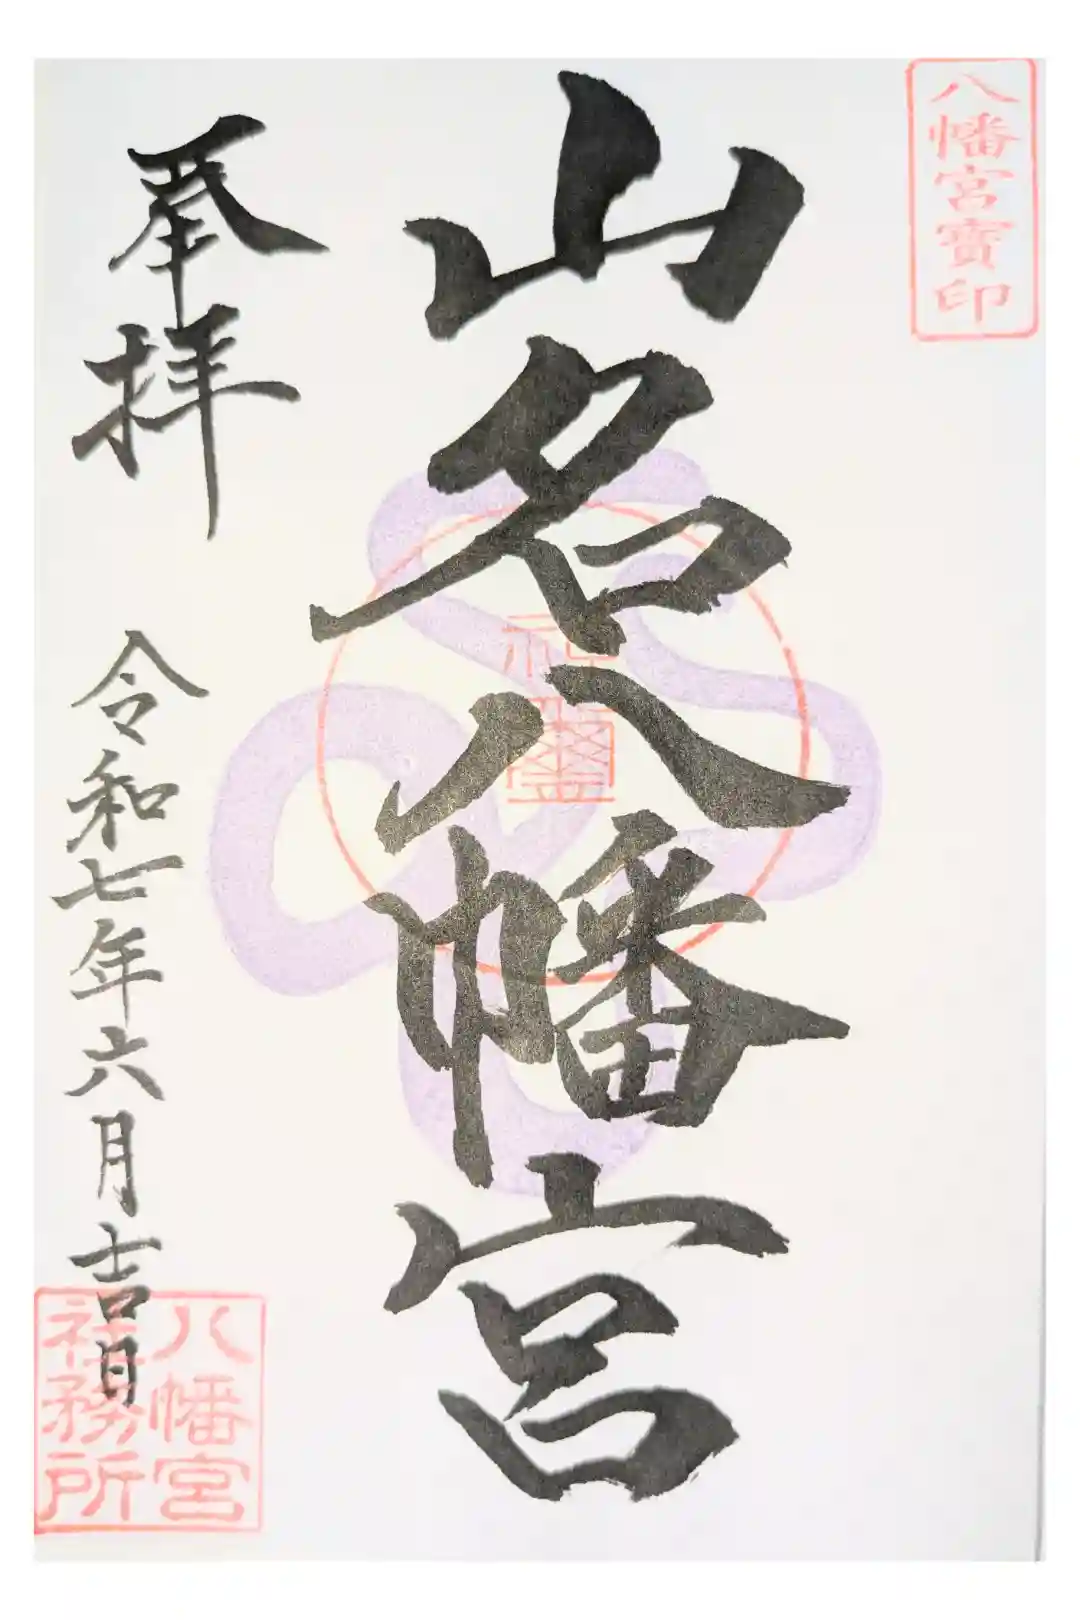 八幡宮寶印
山名八幡宮
奉拝
令和七年六月吉日
神璽
八幡宮
社務所